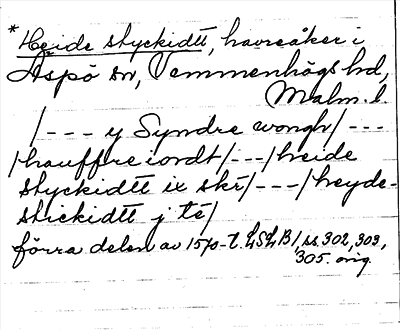 * Heide styckidtt, havreåker i
Äspö sn, Vemmenhögs hd,
Malm. l.
/--- y Syndre wongh/ ---
/hauffre iordt/---/heide
styckidtt ix skr/---/heyde-
stickidtt j te/
förra delen av 1570-t. LSLB1, ss. 302, 303,
305. orig.